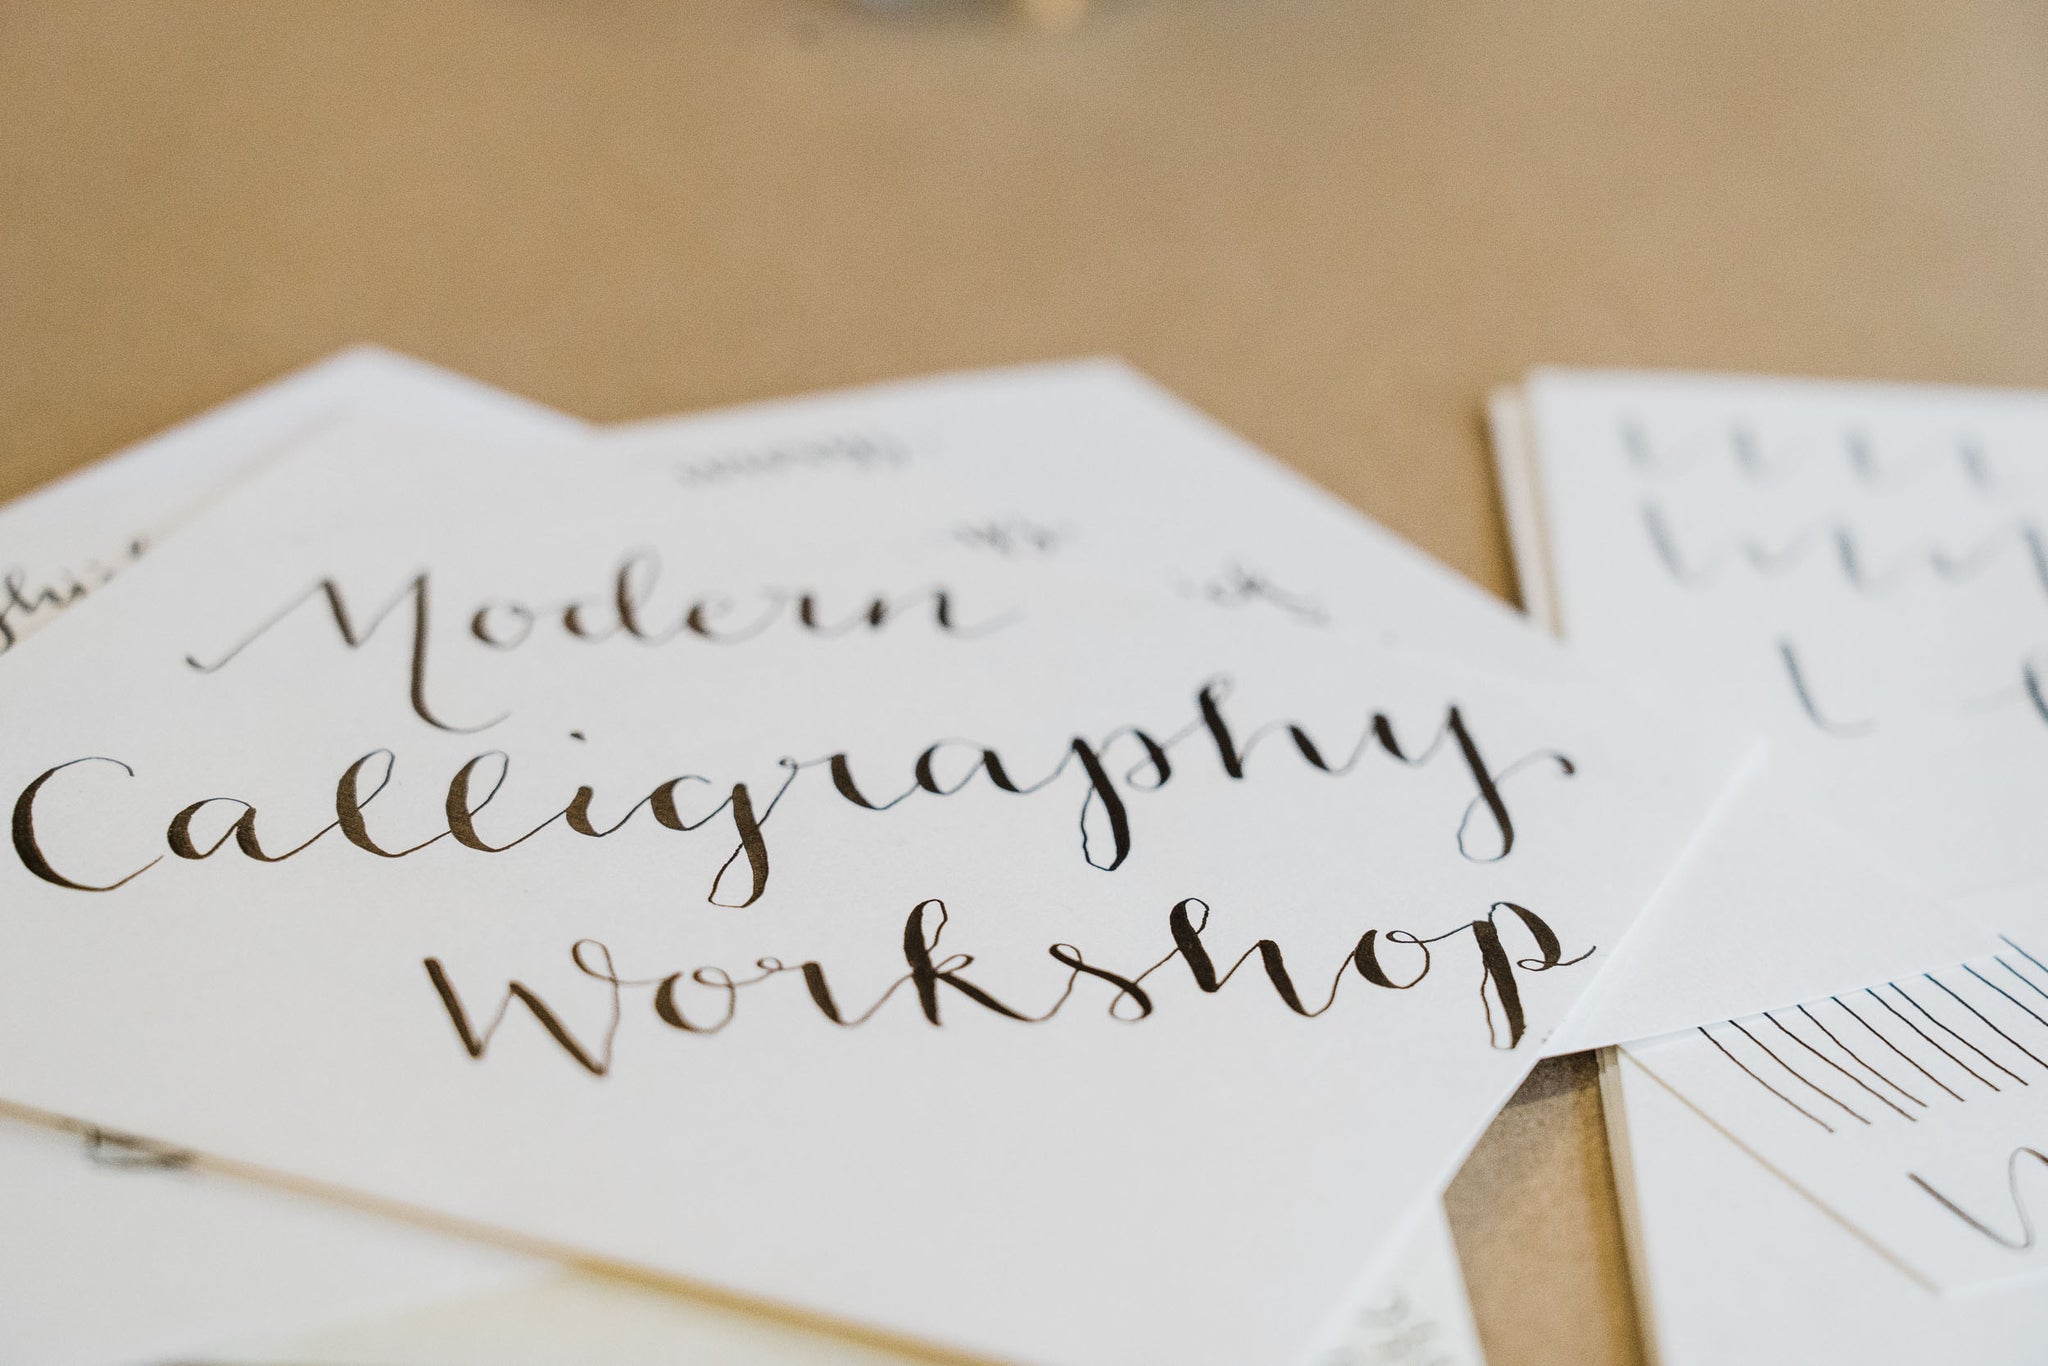 Modern
Calligraphy
Workshop